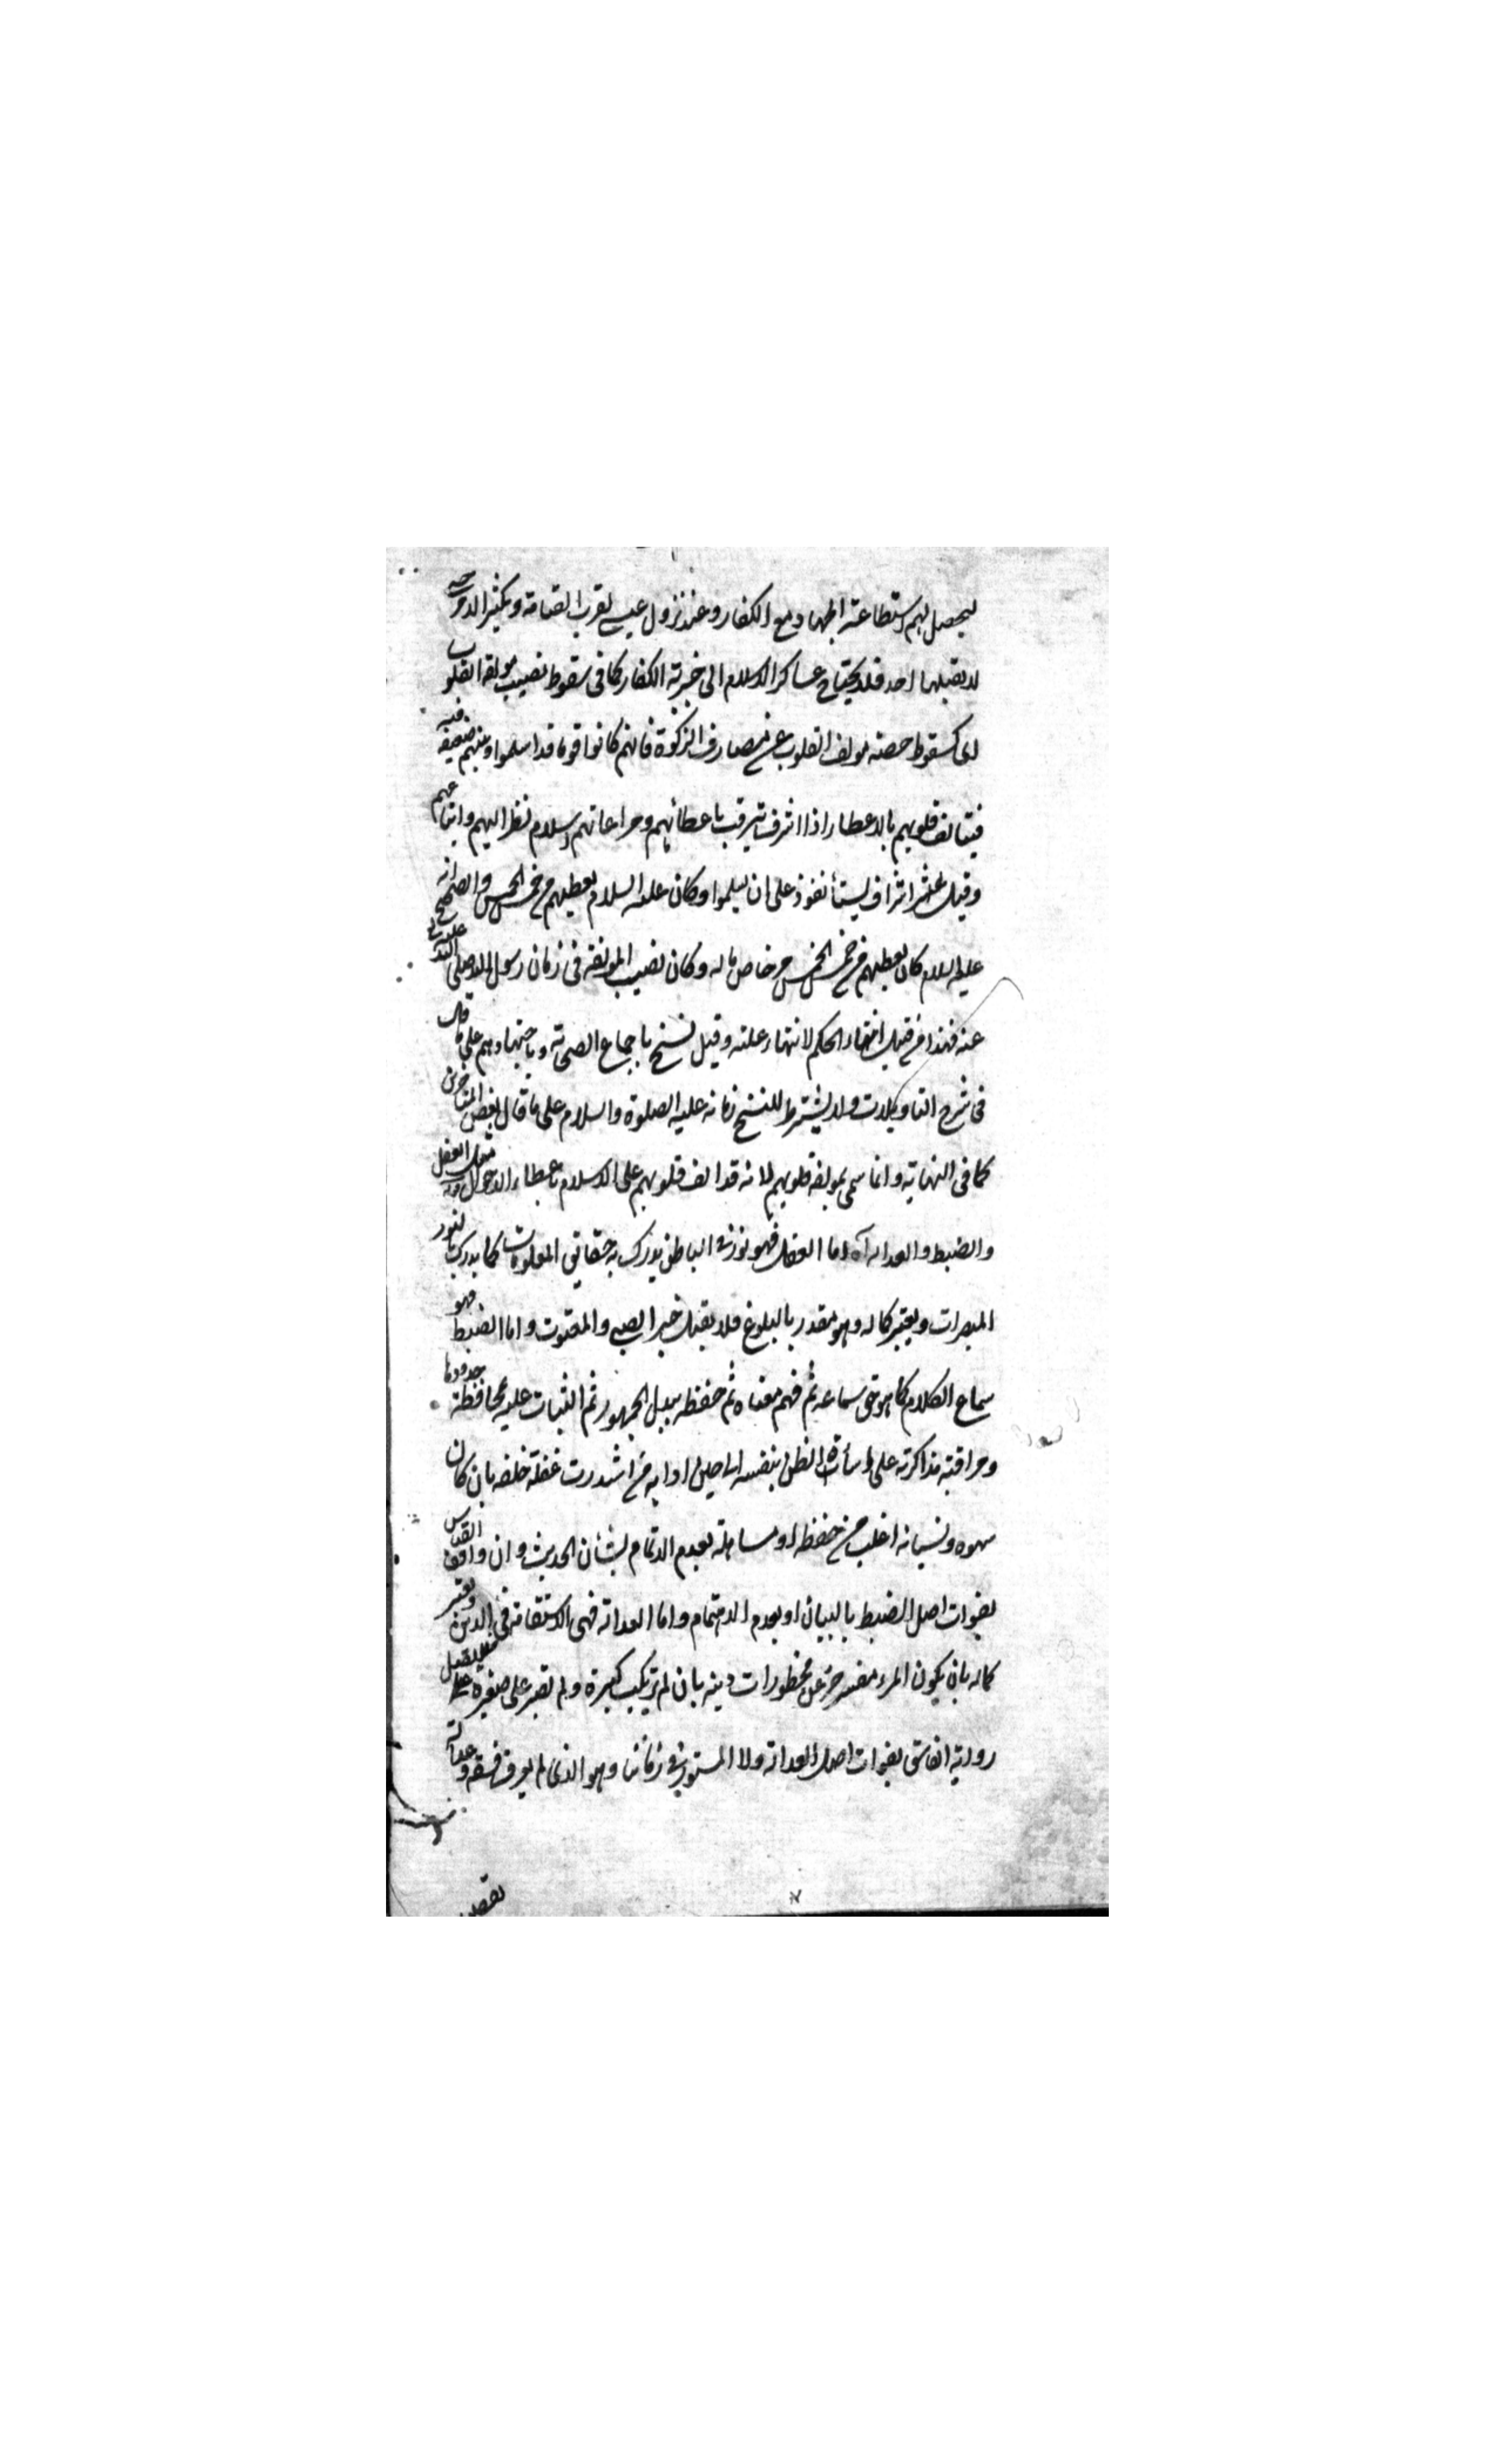 ليحصل لهم استطاعة الجهاد مع الكفار وعند نزول عيسى لقرب القيامة ويكثر الاموال حتى
لا يقبلها احد فلا يحتاج عساكر الاسلام الى خيرية الكفار كما في سقوط نصيب مولفة القلوب
اى كسقوط حصة مولف القلوب عن مصارف الزكوة فانهم كانوا قوما قد اسلموا ونيتهم ضعيفة فيه
فيتالف قلوبهم بالاعطاء اذا اشرف يترقب باعطائهم ومراعاتهم اسلام نظرائهم واتباعهم
وقيل اشراف يستأنفون على ان يسلموا وكان عليه السلام يعطيهم من خمس الخمس والصحيح انه
عليه السلام كان يعطيهم من خمس الخمس من خاص ماله وكان نصيب المولفة في زمان رسول الله صلى الله عليه
عنه فهذا من قبيل انتهاء الحكم لانتهاء علته وقيل نسخ باجماع الصحابة وباجتهادهم على ما قال
في شرح التاويلات ولا يشترط للنسخ زمانه عليه الصلوة والسلام على ما قال بعض المتاخرين
كما في النهاية وانما سمى بمولفة قلوبهم لانه قد الف قلوبهم على الاسلام باعطاء الاموال قوله العقل
والضبط والعدالة آه اما العقل فهو نور في الباطن يدرك به حقائق المعلومات كما يدرك بالنور
المبصرات ويعتبر كماله وهو مقدر بالبلوغ فلا يقبل خبر الصبي والمعتوه واما الضبط فهو
سماع الكلام كما هو حق سماعه ثم فهم معناه ثم حفظه ببذل المجهود ثم الثبات عليه بمحافظة حدوده
ومراقبته بمذاكرته على اسأة الظن بنفسه الى حين ادائه فمن اشتدت غفلة خلقه بان كان
سهوه ونسيانه اغلب من حفظه او مساهلة بعدم الاهتمام بشأن الحديث وان وافق القياس
لفوات اصل الضبط بالنسيان او بعدم الاهتمام واما العدالة فهي الاستقامة في الدين ويعتبر
كماله بان يكون المرء منزجرا عن محظورات دينه بان لم يرتكب كبيرة ولم يصر على صغيرة فلا يقبل
رواية الفاسق لفوات اصل العدالة ولا المستور في زماننا وهو الذى لم يعرف فسقه وعدالته